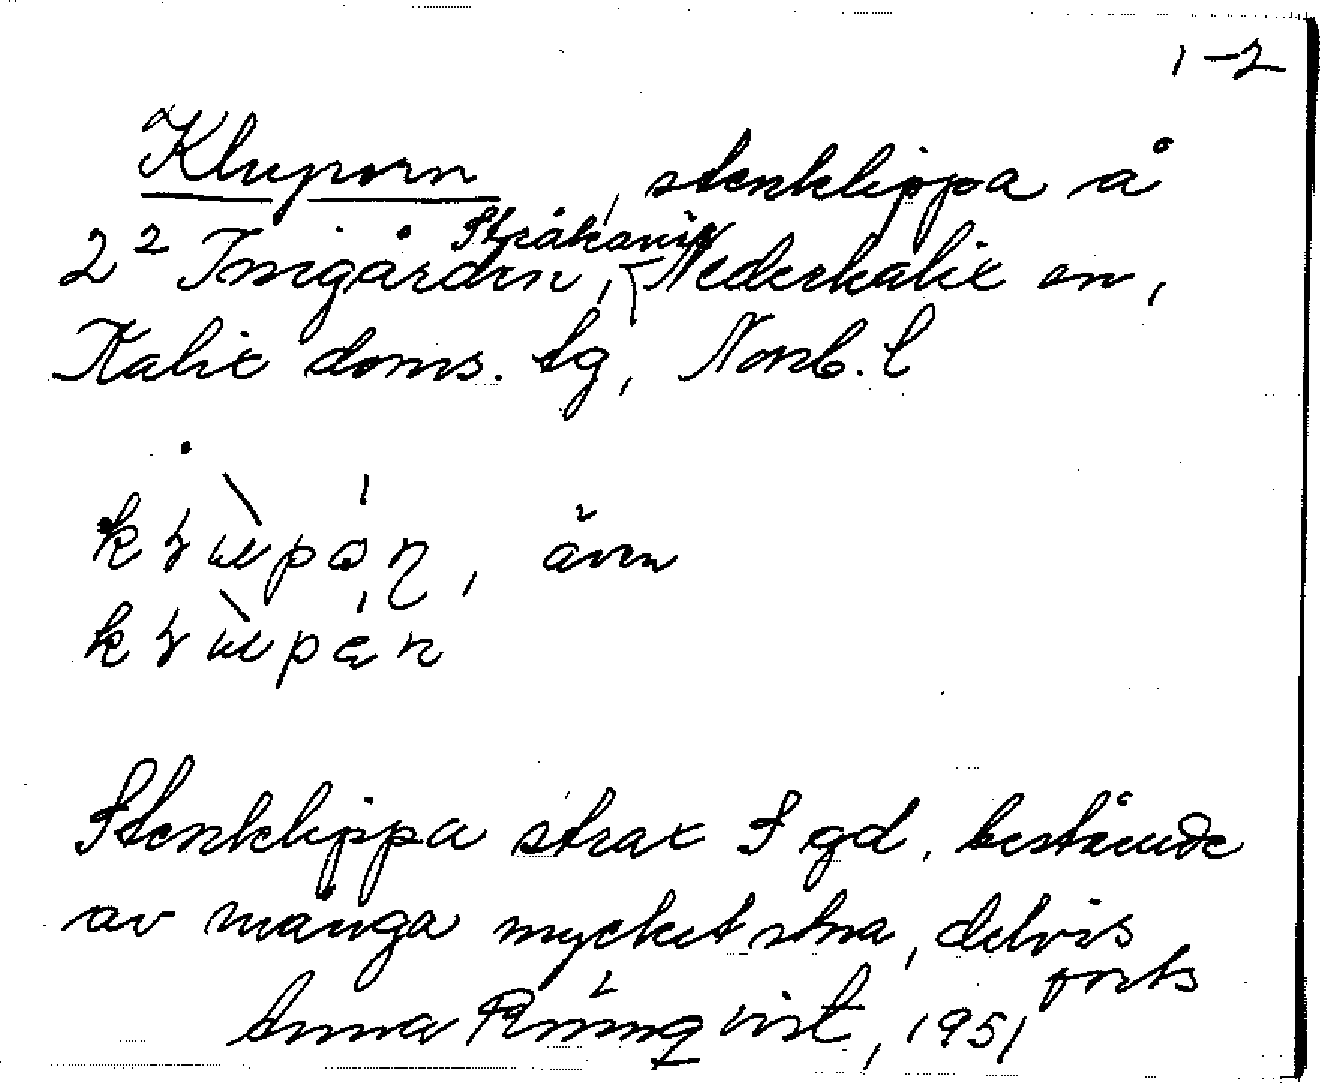 1-2
Kluporn, stenklippa å
2² Inigården, Stråkanäs Nederkalix sn,
Kalix doms. tg, Norrb. l
även
Stenklippa strax S gd, bestående
av många mycket stora, delvis
forts
Anna Rönnqvist, 1951